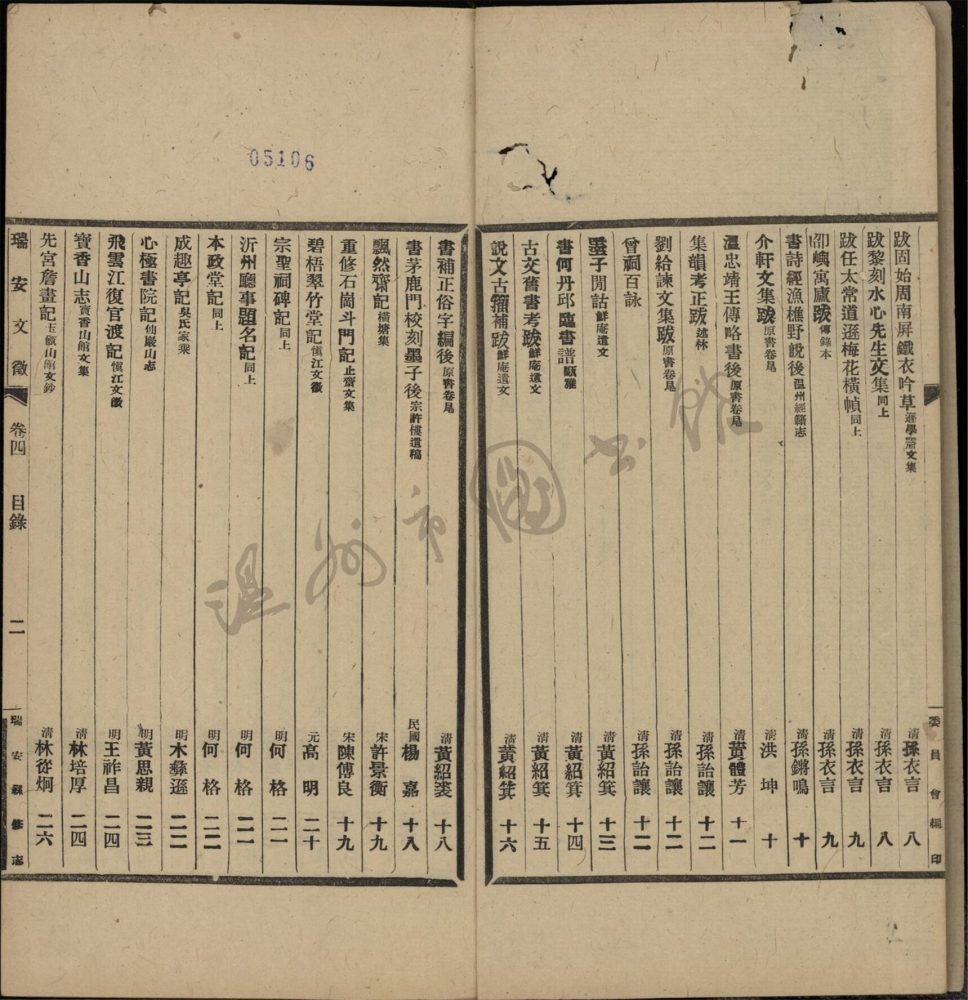 05106
跋固始周南屏鐵衣吟草遜學齋文集 清孫衣言 八
跋黎刻水心先生文集同上 清孫衣言 八
跋任太常道遜梅花橫幀同上 清孫衣言 九
卲嶼寓廬跋傳錄本 清孫衣言 九
書詩經漁樵野說後溫州經籍志 清孫鏘鳴 十
介軒文集跋原書卷尾 清洪坤 十
溫忠靖王傳略書後原書卷尾 清黃體芳 十一
集韻考正跋述林 清孫詒讓 十二
劉給諫文集跋原書卷尾 清孫詒讓 十二
曾祠百詠 清孫詒讓 十二
墨子閒詁鮮庵遺文 清黃紹箕 十三
書何丹邱臨書譜甌雅 清黃紹箕 十四
古文舊書考跋鮮庵遺文 清黃紹箕 十五
說文古籀補跋鮮庵遺文 清黃紹箕 十六
委員會編印
書補正俗字編後原書卷尾 清黃紹裘 十八
書茅鹿門校刻墨子後宗許樓遺稿 民國楊嘉 十八
飄然齋記橫塘集 宋許景衡 十九
重修石崗斗門記止齋文集 宋陳傅良 十九
碧梧翠竹堂記愼江文徵 元高明 二十
宗聖祠碑記同上 明何格 二一
沂州廳事題名記同上 明何格 二一
本政堂記同上 明何格 二二
成趣亭記吳氏家乘 明木彝遜 二二
心極書院記仙巖山志 明黃思親 二三
飛雲江復官渡記愼江文徵 明王祚昌 二四
寶香山志寶香山館文集 清林培厚 二四
先宮詹畫記玉甑山館文鈔 清林從炯 二六
瑞安文徵 卷四 目錄 二 瑞安縣修志
溫州市圖書館